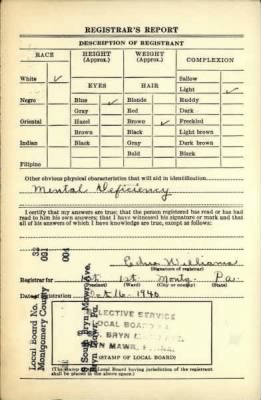 REGISTRAR'S REPORT
DESCRIPTION OF REGISTRANT
RACE
HEIGHT
(Approx.)
WEIGHT
(Approx.)
COMPLEXION
White ✓
EYES
HAIR
Sallow
Light ✓
Negro
Blue ✓
Blonde
Ruddy
Gray
Red
Dark
Oriental
Hazel
Brown ✓
Freckled
Brown
Black
Light brown
Indian
Black
Gray
Dark brown
Bald
Black
Filipino
Other obvious physical characteristics that will aid in identification
Mental Deficiency
I certify that my answers are true; that the person registered has read or has
had read to him his own answers; that I have witnessed his signature or mark and that
all of his answers of which I have knowledge are true, except as follows:
32
001
091
004
Williams
(Signature of registrar)
Registrar for 1st Montg. Pa.
(Precinct) (Ward) (City or county) (State)
Date of registration Oct 16 - 1940
Local Board No.
Montgomery County
Bryn Mawr, Pa.
SELECTIVE SERVICE
LOCAL BOARD
BRYN
BRYN MAWR, PENNA.
(STAMP OF LOCAL BOARD)
(The stamp of the Local Board having jurisdiction of the registrant shall be
placed in the above space.)